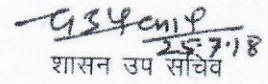 25.7.18
शासन उप सचिव